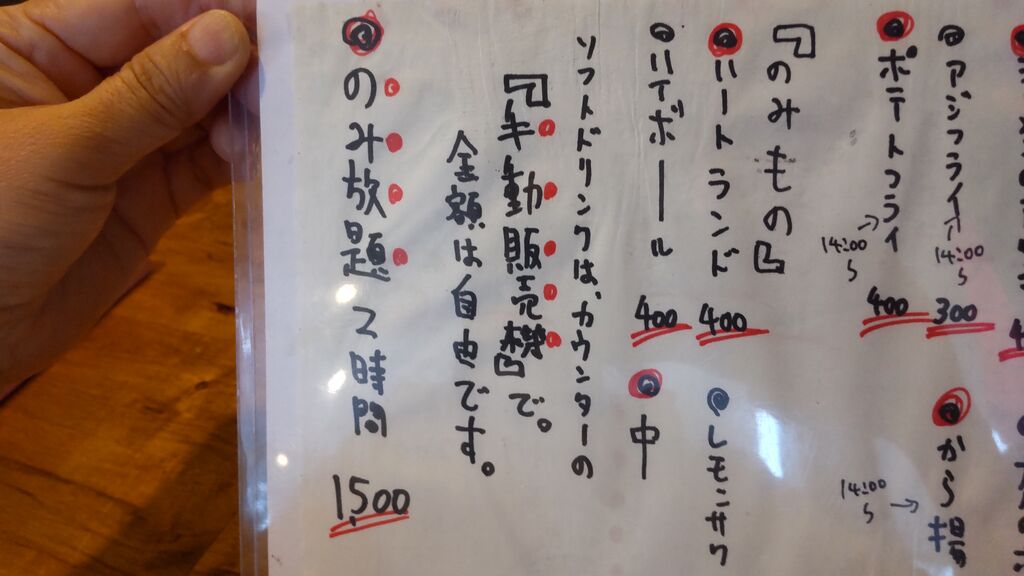 アジフライ
14:00〜
300
から揚
14:00〜
ポテトフライ
14:00〜
400
『のみもの』
ハートランド
400
レモンサワ
ハイボール
400
中
ソフトドリンクは、カウンターの
『手動販売機』で。
金額は自由です。
のみ放題 2時間
1,500